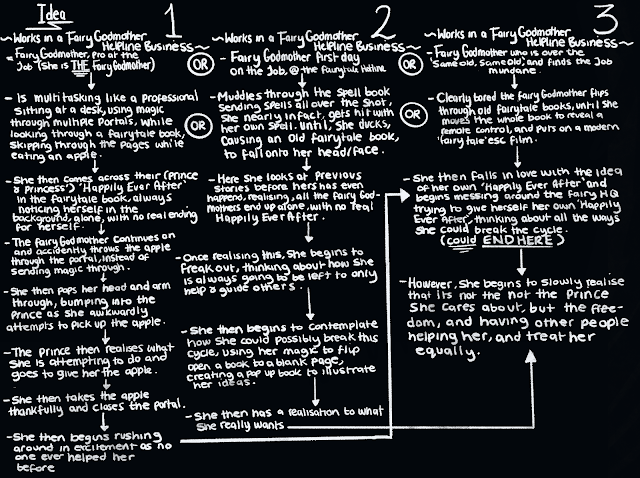 Idea
1
~Works in a Fairy Godmother
Helpline Business~
- Fairy Godmother, pro at the
Job (she is THE Fairy Godmother)
- Is multitasking like a professional
sitting at a desk, using magic
through multiple portals, while
looking through a fairytale book,
skipping through the pages while
eating an apple.
- She then comes across their (Prince
& Princess's) 'Happily Ever After'
in the fairytale book, always
noticing herself in the
background, alone, with no real ending
for herself.
- The fairy Godmother continues on
and accidently throws the apple
through the portal, instead of
sending magic through.
- She then pops her head and arm
through, bumping into the
Prince as she awkwardly
attempts to pick up the apple.
- The prince then realises what
She is attempting to do and
goes to give her the apple.
- She then takes the apple
thankfully and closes the portal.
- She then begins rushing
around in excitement as no
one ever helped her
before
OR
OR
2
~Works in a Fairy Godmother
Helpline Business~
- Fairy Godmother first day
on the Job, @ the fairytale Hotline
- Muddles through the spell book
Sending spells all over the shot,
She nearly infact, gets hit with
her own spell. Until, she ducks,
Causing an old fairytale book,
to fall onto her head/face.
- Here she looks at previous
Stories before hers has even
happend, realising, all the fairy God-
mothers end up alone, with no real
Happily Ever After.
- Once realising this, she begins to
freak out, thinking about how she
is always going to be left to only
help & guide others.
- She then begins to contemplate
how she could possibly break this
cycle, using her magic to flip
open a book to a blank page,
creating a pop up book to illustrate
her ideas.
- She then has a realisation to what
She really wants
OR
OR
3
~Works in a Fairy Godmother
Helpline Business~
- Fairy Godmother who is over the
'same old, same old', and finds the Job
mundane.
- Clearly bored the fairy Godmother flips
through old fairytale books, until she
moves the whole book to reveal a
remote control, and puts on a modern
'fairytale' esc film.
- She then falls in love with the idea
of her own 'Happily Ever After' and
begins messing around the fairy HQ
trying to give herself her own 'Happily
Ever After', thinking about all the ways
She could break the cycle.
(could END HERE)
- However, she begins to slowly realise
that its not the not the prince
She cares about, but the free-
dom, and having other people
helping her, and treat her
equally.